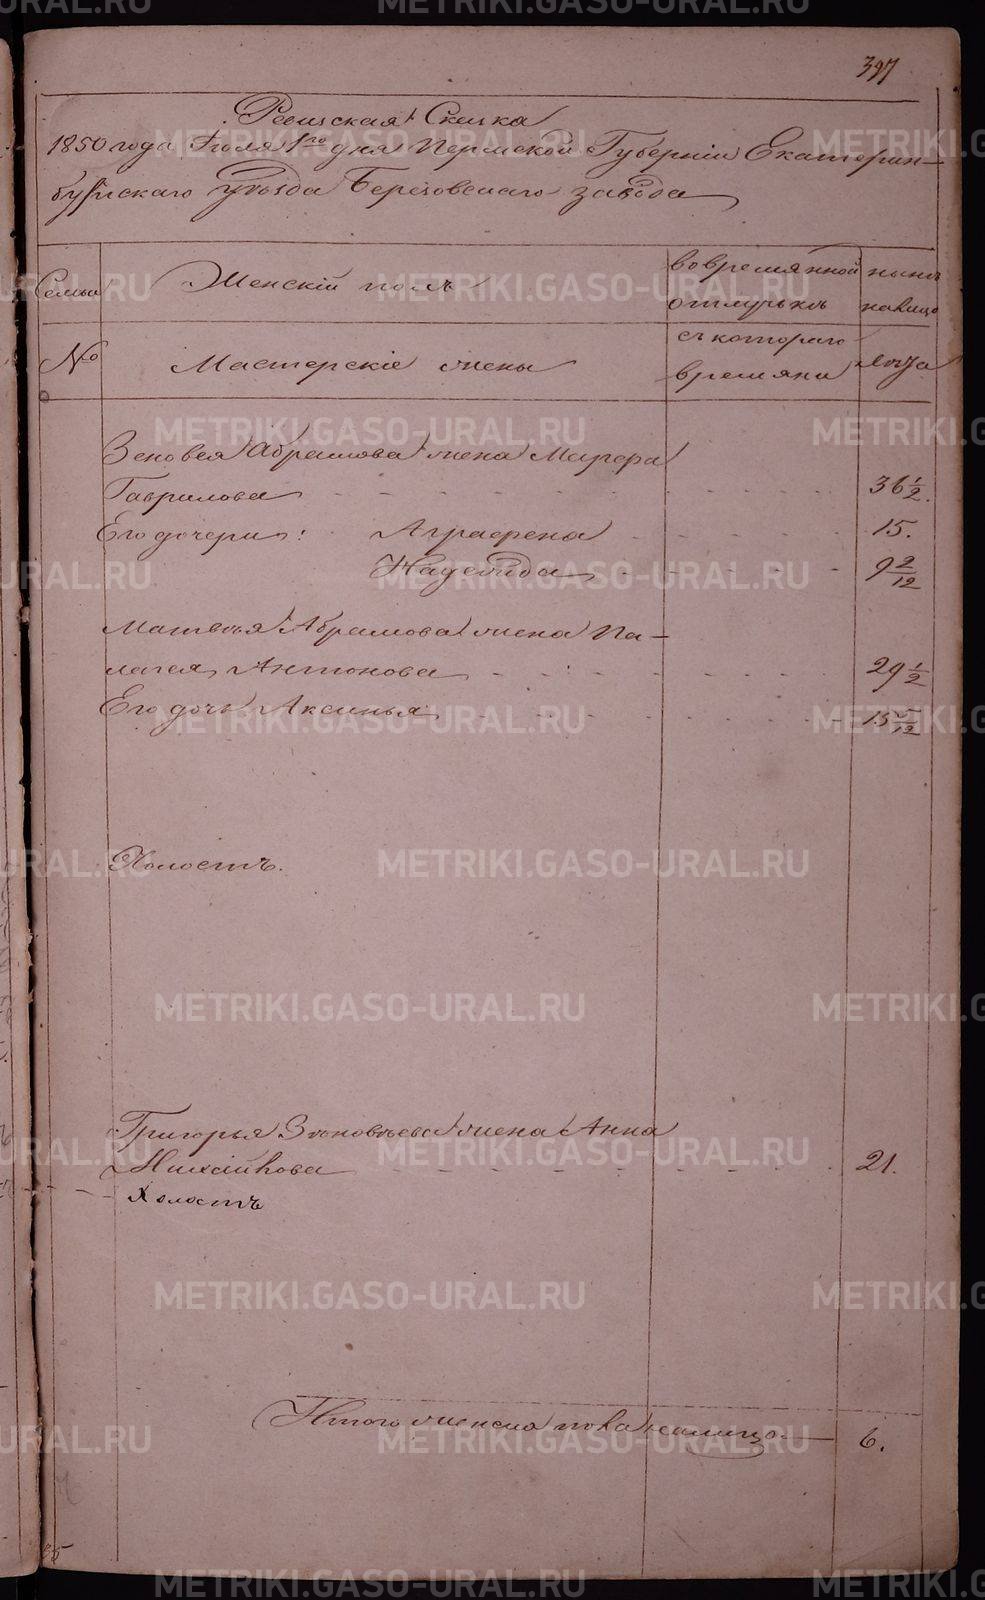 397
Ревизская Сказка
1850 года Июля 1го дня Пермской Губернии Екатерин-
бургскаго уезда Березовскаго завода
Семьи
Женскій полъ
во времянной отлучкѣ
нынѣ налицо
№
Мастерскіе жены
съ котораго времяни
лѣта
Зеновея Абрамова жена Марфа
Гаврилова 36 1/2.
Его дочери: Аграфена 15.
Надежда 9 2/12
Матвѣя Абрамова жена Па-
лагея Антонова 29 1/2
Его дочь Аксинья 15 5/12
Холостъ.
Григорья Зѣновьева жена Анна
Михайлова 21.
Холостъ
Итого женска пола налицо 6.
METRIKI.GASO-URAL.RU